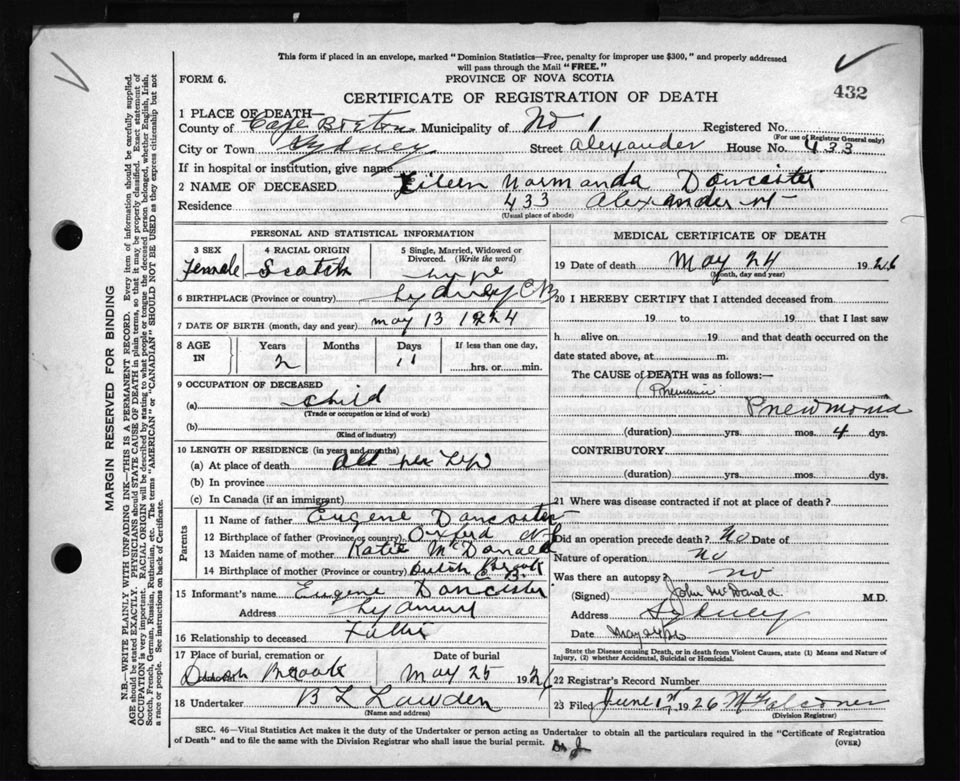 This form if placed in an envelope, marked "Dominion Statistics—Free, penalty for improper use $300," and properly addressed
will pass through the Mail "FREE."
FORM 6.
PROVINCE OF NOVA SCOTIA
432
CERTIFICATE OF REGISTRATION OF DEATH
1 PLACE OF DEATH—
County of Cape Breton Municipality of No 1 Registered No.
(For use of Registrar General only)
City or Town Sydney Street Alexander House No. 433
If in hospital or institution, give name
2 NAME OF DECEASED Eileen Normanda Doncaster
Residence 433 Alexander St
(Usual place of abode)
PERSONAL AND STATISTICAL INFORMATION
3 SEX 4 RACIAL ORIGIN 5 Single, Married, Widowed or
Divorced. (Write the word)
Female Scotch
6 BIRTHPLACE (Province or country) Sydney C B
7 DATE OF BIRTH (month, day and year) May 13 1924
8 AGE IN Years Months Days If less than one day,
2 11 hrs. or min.
9 OCCUPATION OF DECEASED
(a) child
(Trade or occupation or kind of work)
(b)
(Kind of industry)
10 LENGTH OF RESIDENCE (in years and months)
(a) At place of death All her Life
(b) In province
(c) In Canada (if an immigrant)
Parents
11 Name of father Eugene Doncaster
12 Birthplace of father (Province or country) Oxford N S
13 Maiden name of mother Katie McDonald
14 Birthplace of mother (Province or country) Dutch Brook C. B.
15 Informant's name Eugene Doncaster
Address Sydney
16 Relationship to deceased Father
17 Place of burial, cremation or Date of burial
Dutch Brook May 25 1926
18 Undertaker B L Lowden
(Name and address)
MEDICAL CERTIFICATE OF DEATH
19 Date of death May 24 1926
(Month, day and year)
20 I HEREBY CERTIFY that I attended deceased from
19 to 19 that I last saw
h alive on 19 and that death occurred on the
date stated above, at m.
The CAUSE of DEATH was as follows:—
Pneumonia
(duration) yrs. mos. 4 dys.
CONTRIBUTORY
(duration) yrs. mos. dys.
21 Where was disease contracted if not at place of death?
Did an operation precede death? No Date of
Nature of operation no
Was there an autopsy? no
(Signed) John McDonald M.D.
Address Sydney
Date May 24/26
State the Disease causing Death, or in death from Violent Causes, state (1) Means and Nature of
Injury, (2) whether Accidental, Suicidal or Homicidal.
22 Registrar's Record Number
23 Filed June 1st 1926 McFalconer
(Division Registrar)
SEC. 46—Vital Statistics Act makes it the duty of the Undertaker or person acting as Undertaker to obtain all the particulars required in the "Certificate of Registration
of Death" and to file the same with the Division Registrar who shall issue the burial permit.
(OVER)
MARGIN RESERVED FOR BINDING
N.B.—WRITE PLAINLY WITH UNFADING INK—THIS IS A PERMANENT RECORD. Every item of information should be carefully supplied.
AGE should be stated EXACTLY. PHYSICIANS should STATE CAUSE OF DEATH in plain terms, so that it may be properly classified. Exact statement of
OCCUPATION is very important. RACIAL ORIGIN will be described by stating to what people or tongue the deceased person belonged, whether English, Irish,
Scotch, French, German, Russian, Ruthenian, etc. The terms "AMERICAN" or "CANADIAN" SHOULD NOT BE USED as they express citizenship but not
a race or people. See instructions on back of Certificate.